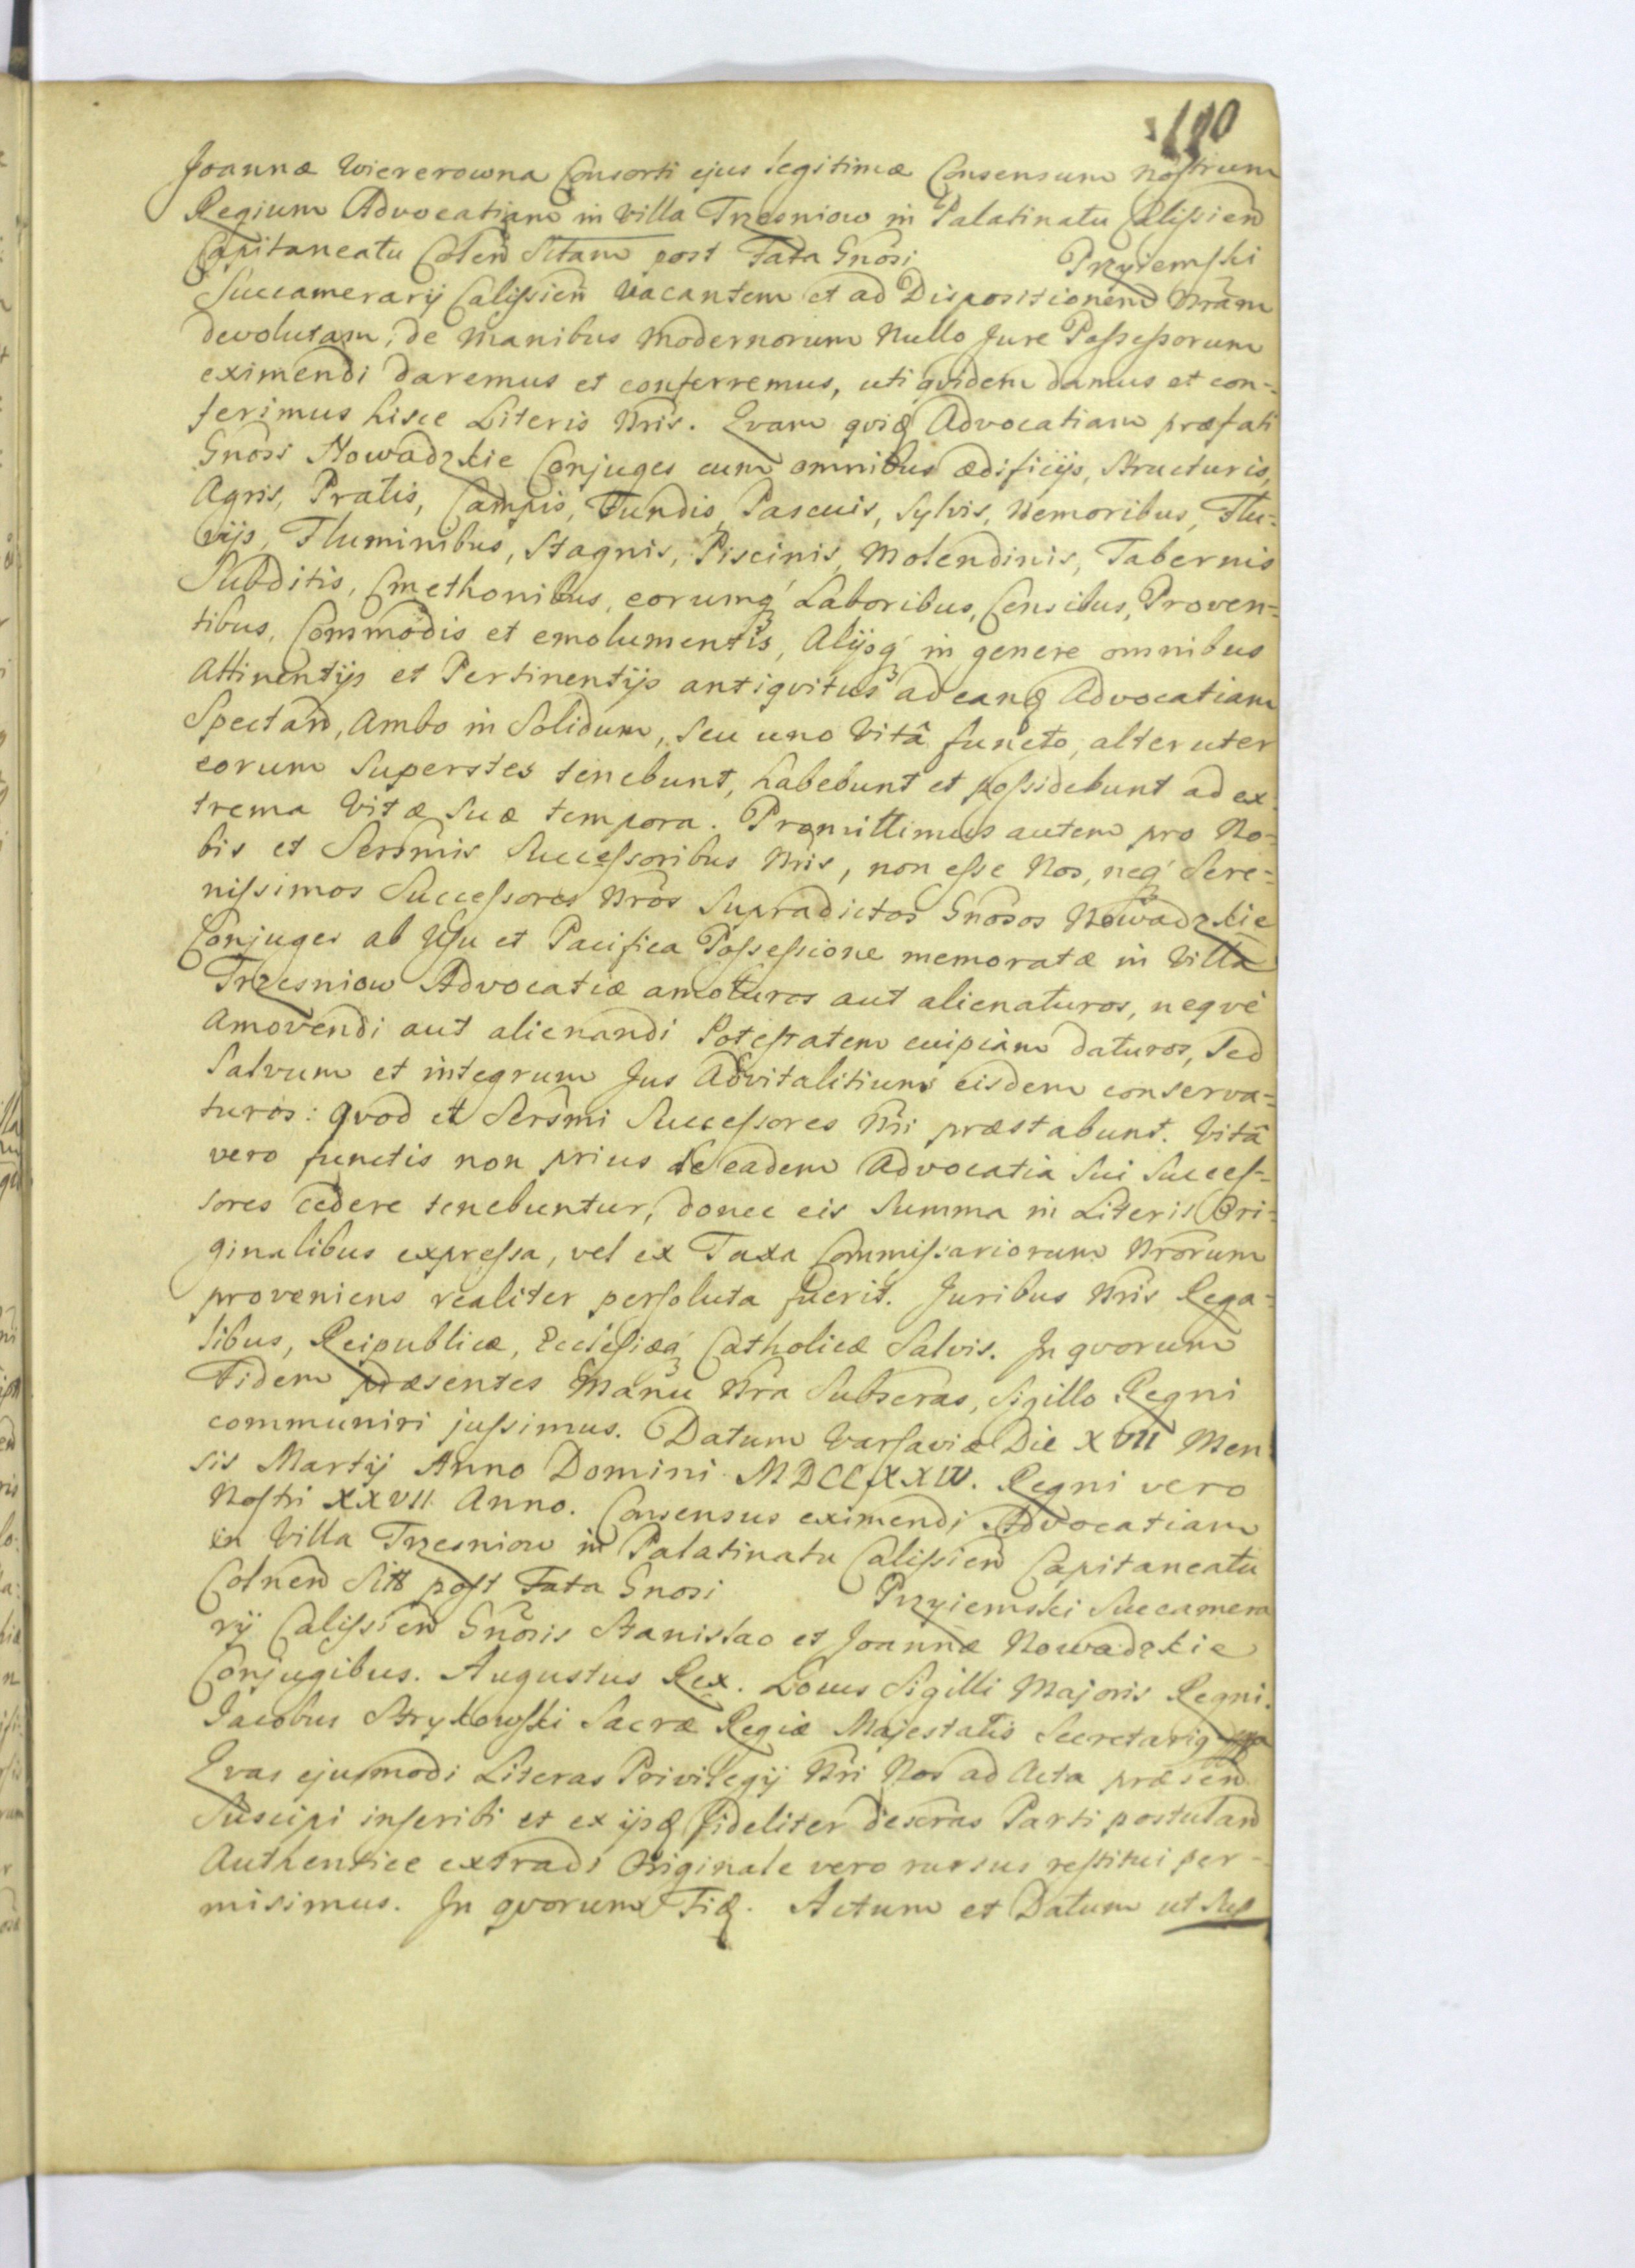 190
Joannæ Wiererowna Consorti ejus legitimæ Consensum nostrum
Regium Advocatiam in Villa Trzesniow in Palatinatu Calissień
Capitaneatu Coleń Sitam post Fata Gnosi Przyiemski
Succamerarij Calissień vacantem et ad Dispositionem Nram
devolutam, de manibus modernorum Nullo Jure Possessorum
eximendi daremus et conferremus, uti qvidem damus et con-
ferimus hisce Literis Nris. Qvam qvid Advocatiam præfati
Gnosi Nowadzkie Conjuges cum omnibus ædificijs, Structuris,
Agris, Pratis, Campis, Fundis, Pascuis, Sylvis, Nemoribus, Flu-
vijs, Fluminibus, Stagnis, Piscinis, Molendinis, Tabernis
Subditis, Cmethonibus, eorumq́ Laboribus, Censibus, Proven-
tibus, Commodis et emolumentis, Alijsq́ in genere omnibus
Attinentijs et Pertinentijs antiqvitus ad eand Advocatiam
Spectań, Ambo in Solidum, Seu uno Vitâ functo, alteruter
eorum Superstes tenebunt, habebunt et possidebunt ad ex-
trema Vitæ Suæ tempora. Promittimus autem pro No-
bis et Sersmis Successoribus Nris, non esse Nos, neq́ Sere-
nissimos Successores Nros Supradictos Gnosos Nowadzkie
Conjuges ab Usu et Pacifica Possessione memoratæ in Villa
Trzesniow Advocatiæ amoturos aut alienaturos, neqvè
Amovendi aut alienandi Potestatem cuipiam daturos, Sed
Salvum et integrum Jus Advitalitium eisdem conserva-
turos: qvod et Sersmi Successores Nri præstabunt. Vitâ
vero functis non prius de eadem Advocatia Sui Succes-
sores cedere tenebuntur, donec eis Summa in Literis Ori-
ginalibus expressa, vel ex Taxa Commissariorum Nrorum
proveniens realiter persoluta fuerit. Juribus Nris Rega-
libus, Reipublicæ, Ecclesiæq́ Catholicæ Salvis. In qvorum
Fidem præsentes Manu Nra Subscras, Sigillo Regni
communiri jussimus. Datum Varsaviæ Die XVII Men
sis Martij Anno Domini MDCCXXIV. Regni vero
Nostri XXVII Anno. Consensus eximendi Advocatiam
in Villa Trzesniow in Palatinatu Calissień Capitaneatu
Colneń Sitt post Fata Gnosi Przyiemski Succamera
rij Calissień Gnosis Stanislao et Joannæ Nowadzkie
Conjugibus. Augustus Rex. Locus Sigilli Majoris Regni.
Jacobus Strykowski Sacræ Regiæ Majestatis Secretarig
Qvas ejusmodi Literas Privilegij Nri Nos ad Acta præseń
Suscipi inscribi et ex ijsd fideliter descras Parti postulań
Authentice extradi Originale vero rursus restitui per-
misimus. In qvorum Fid. Actum et Datum ut Sup